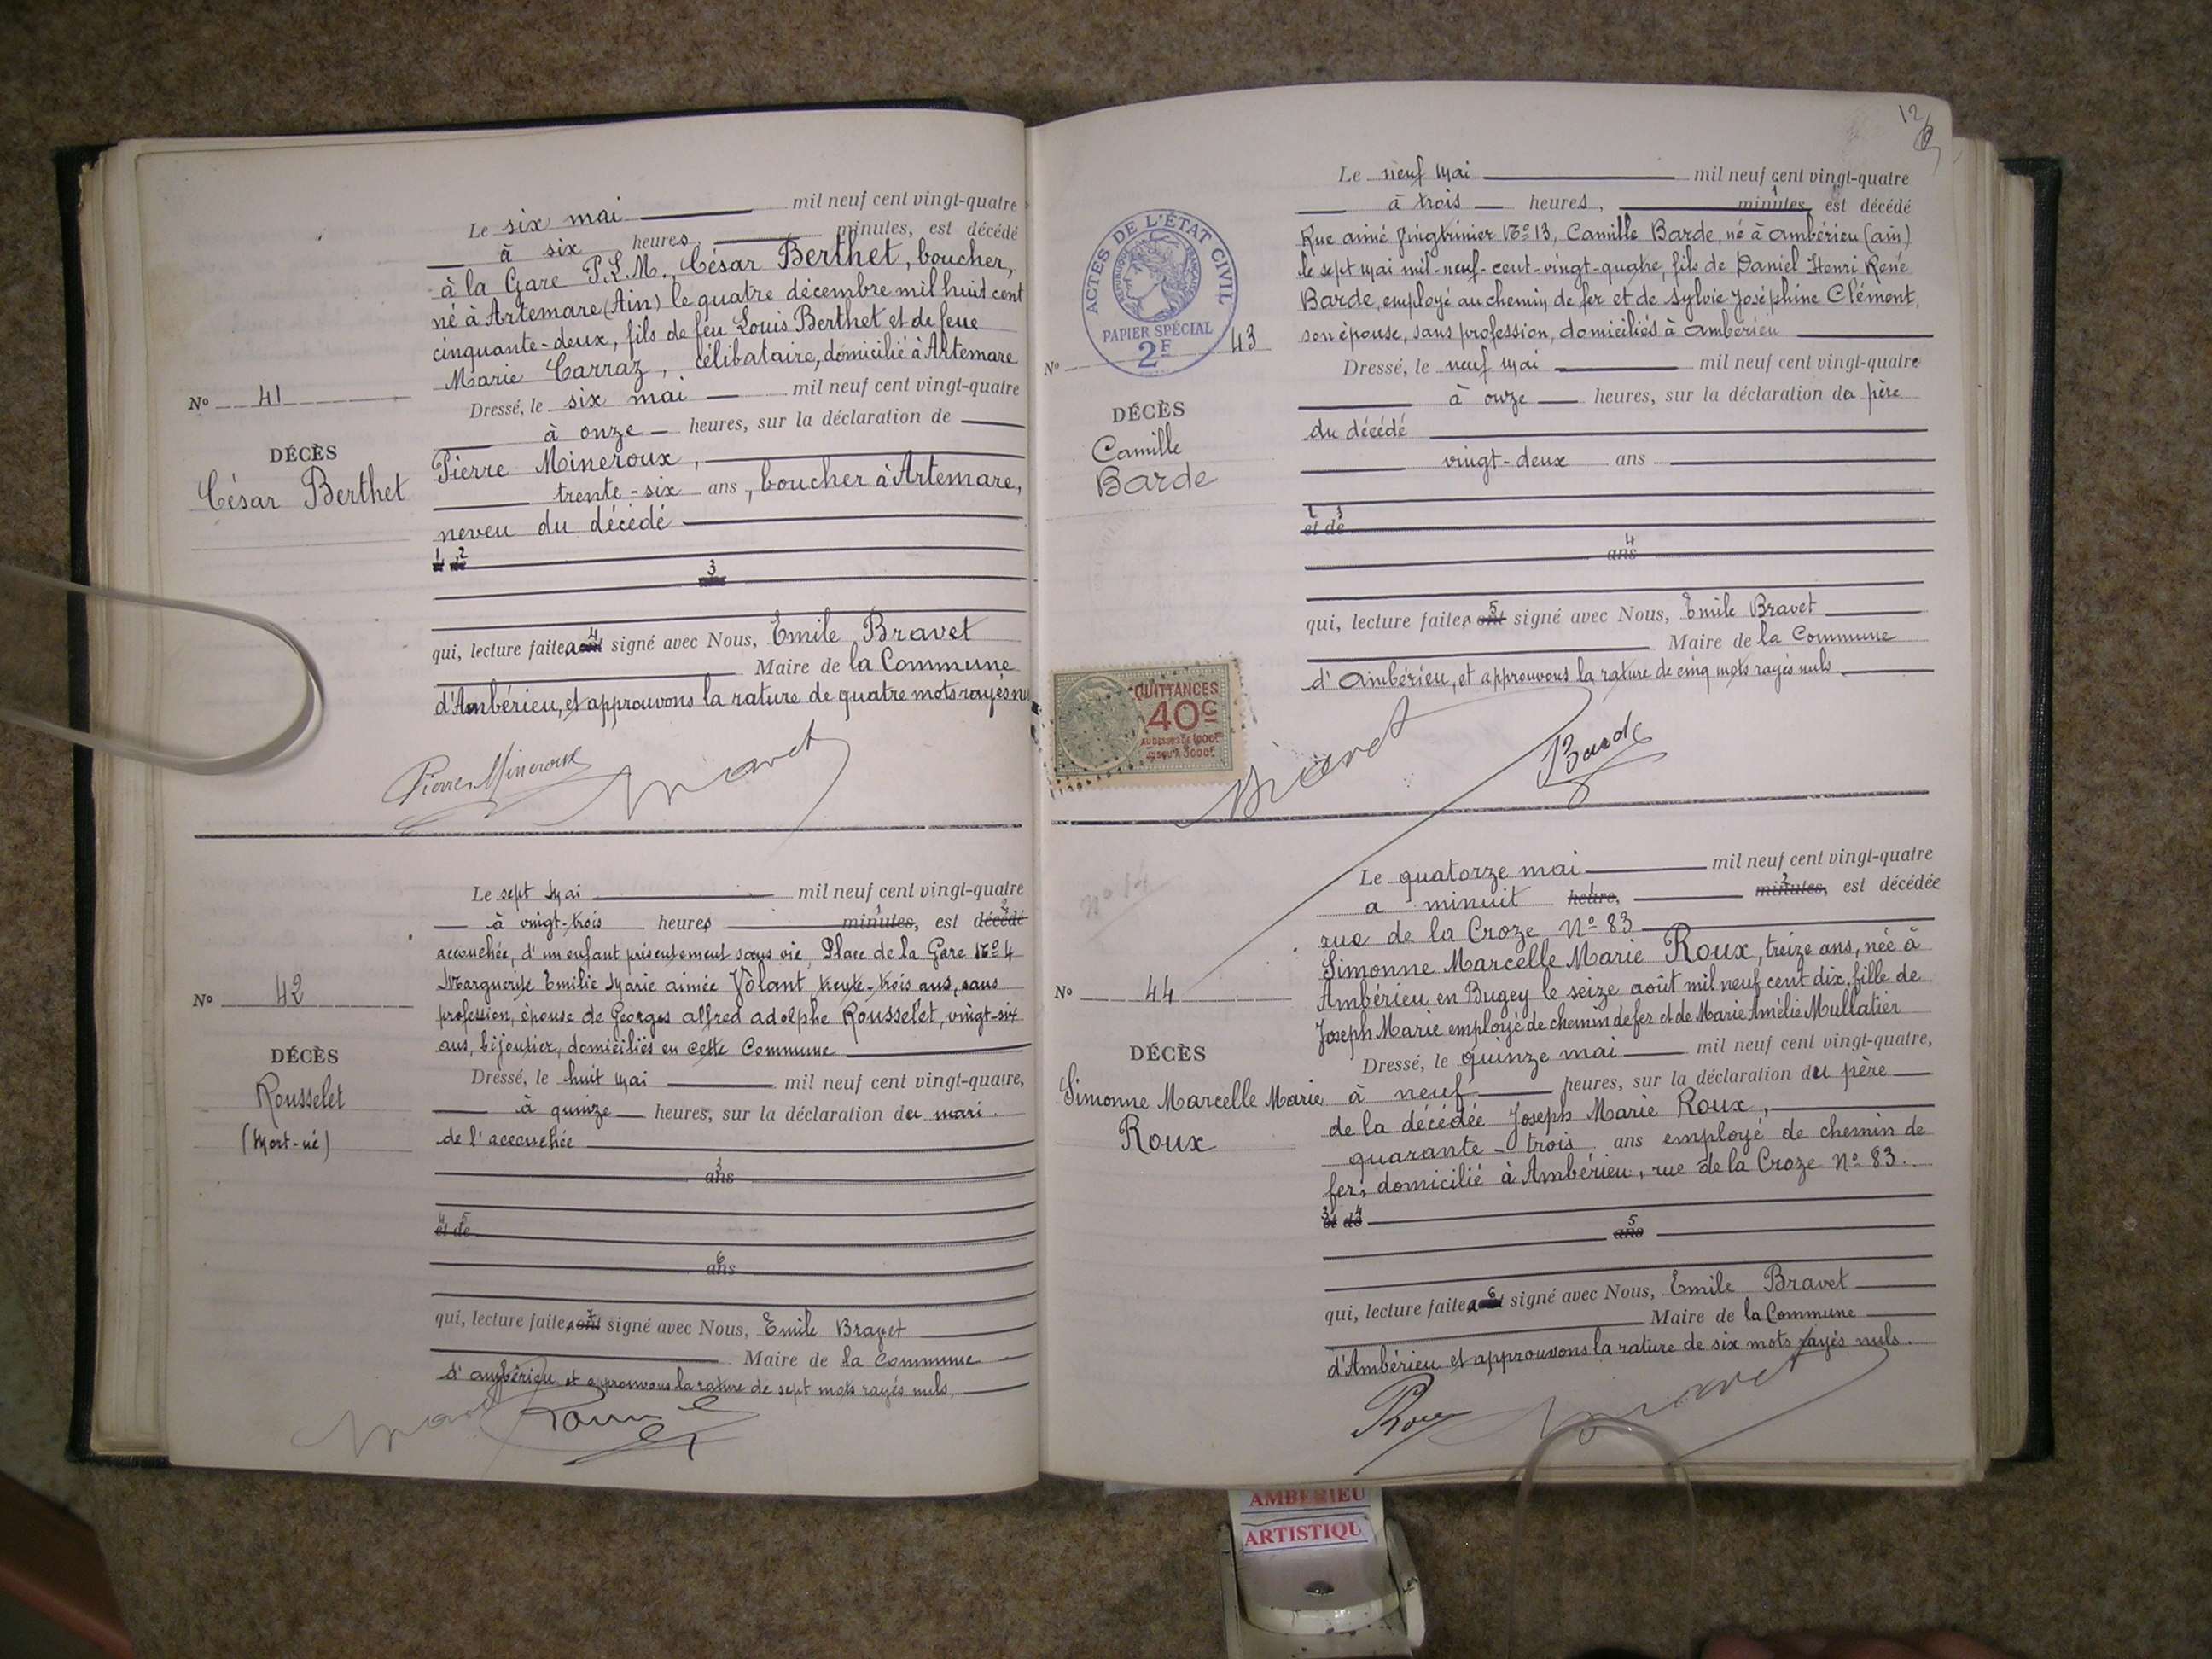 Le six mai mil neuf cent vingt-quatre
à six heures minutes, est décédé
à la Gare P.L.M., César Berthet, boucher,
né à Artemare (Ain) le quatre décembre mil huit cent
cinquante-deux, fils de feu Louis Berthet et de feue
Marie Carraz, célibataire, domicilié à Artemare
No 41
Dressé, le six mai mil neuf cent vingt-quatre
à onze heures, sur la déclaration de
DÉCÈS
César Berthet
Pierre Mineroux,
trente-six ans, boucher à Artemare,
neveu du décédé
1 2
3
qui, lecture faite, a 4 signé avec Nous, Emile Bravet
Maire de la Commune
d'Ambérieu, et approuvons la rature de quatre mots rayés nu
Pierre Mineroux Bravet
Le sept mai mil neuf cent vingt-quatre
à vingt-trois heures minutes, est décédé
accouchée, d'un enfant présentement sans vie, Place de la Gare No 4
Marguerite Emilie Marie aimée Volant trente-trois ans, sans
profession, épouse de Georges alfred adolphe Rousselet, vingt-six
ans, bijoutier, domiciliés en cette Commune
No 42
DÉCÈS
Rousselet
(Mort-né)
Dressé, le huit mai mil neuf cent vingt-quatre,
à quinze heures, sur la déclaration du mari
de l'accouchée
3
ans
4 5
et de
6
ans
qui, lecture faite, a ont 7 signé avec Nous, Emile Bravet
Maire de la Commune
d'ambérieu et approuvons la rature de sept mots rayés nuls
Bravet
12
Le neuf mai mil neuf cent vingt-quatre
à trois heures, minutes 1 est décédé
Rue aimé Vingtrinier No 13, Camille Barde, né à ambérieu (ain)
le sept mai mil-neuf-cent-vingt-quatre, fils de Daniel Henri René
Barde, employé au chemin de fer et de Sylvie Joséphine Clément,
son épouse, sans profession, domiciliés à ambérieu
ACTES DE L'ÉTAT CIVIL
RÉPUBLIQUE FRANÇAISE
PAPIER SPÉCIAL
2F
No 43
DÉCÈS
Camille
Barde
Dressé, le neuf mai mil neuf cent vingt-quatre
à onze heures, sur la déclaration du père
du décédé
vingt-deux ans
2 3
et de
4
ans
qui, lecture faite, a ont 5 signé avec Nous, Emile Bravet
Maire de la Commune
d'ambérieu, et approuvons la rature de cinq mots rayés nuls
QUITTANCES
40c
AU DESSUS DE 1000F
JUSQU'À 3000F
Bravet Barde
Le quatorze mai mil neuf cent vingt-quatre
a minuit heure, 1 minutes, 2 est décédée
rue de la Croze No 83
Simonne Marcelle Marie Roux, treize ans, née à
Ambérieu en Bugey le seize août mil neuf cent dix, fille de
Joseph Marie employé de chemin de fer et de Marie Amélie Mullatier
No 14
No 44
DÉCÈS
Simonne Marcelle Marie
Roux
Dressé, le quinze mai mil neuf cent vingt-quatre,
à neuf heures, sur la déclaration du père
de la décédée Joseph Marie Roux,
quarante-trois ans employé de chemin de
fer, domicilié à Ambérieu, rue de la Croze No 83.
3 4
et de
5
ans
qui, lecture faite, a 6 signé avec Nous, Emile Bravet
Maire de la Commune
d'Ambérieu et approuvons la rature de six mots rayés nuls.
Roux Bravet
AMBERIEU
ARTISTIQU